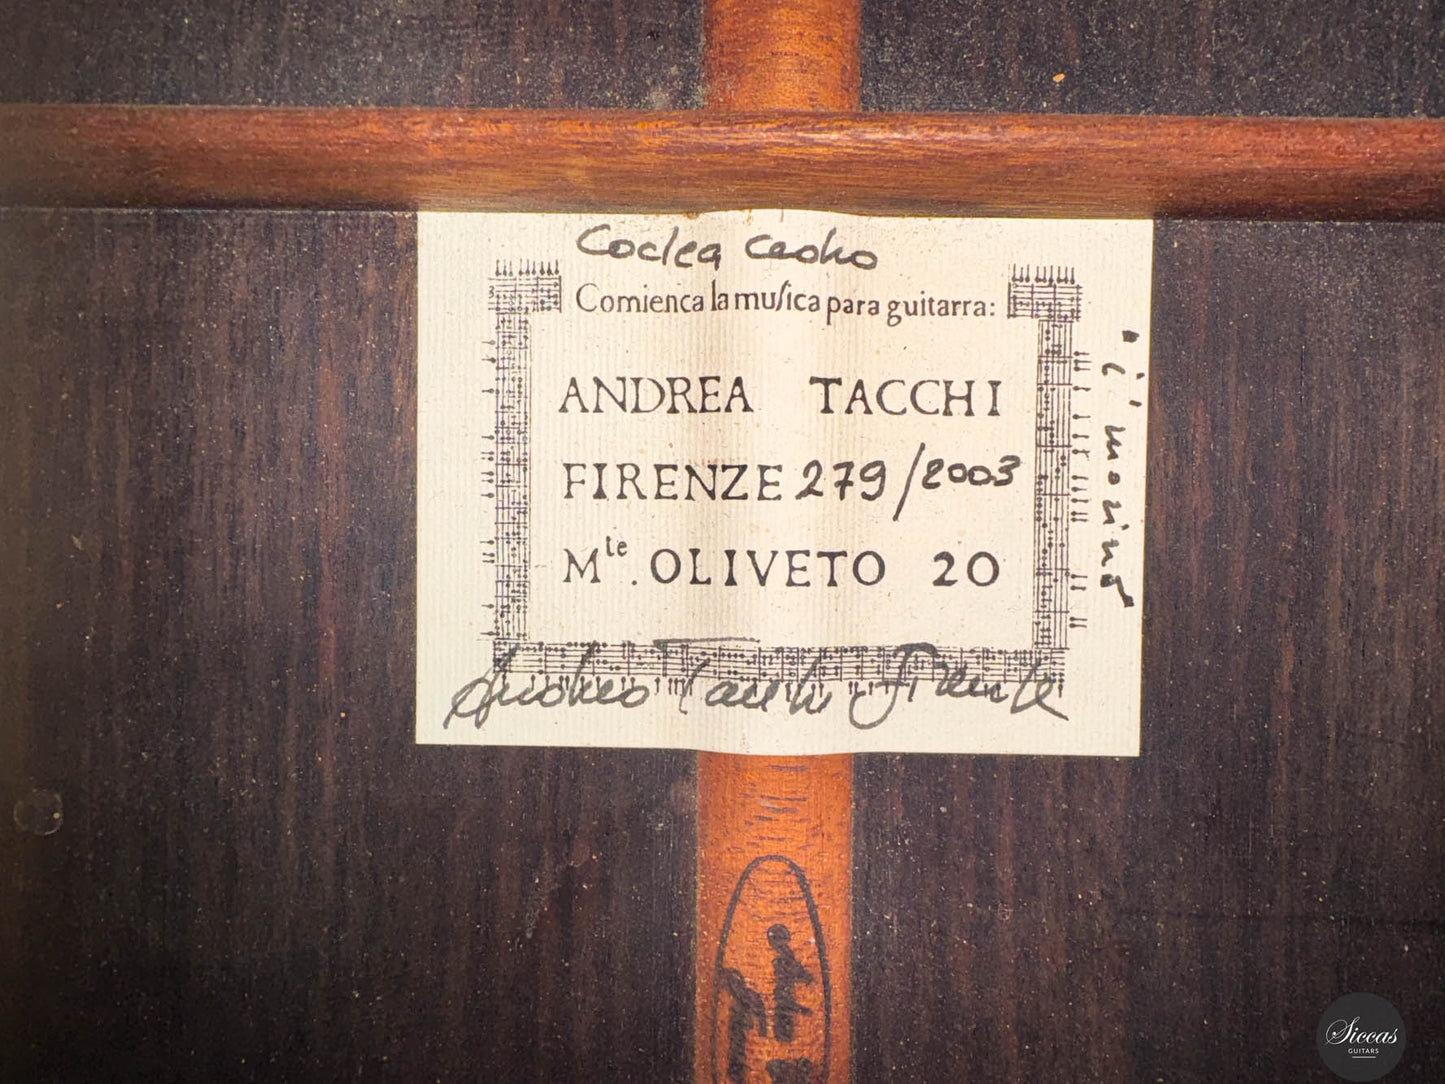 Coclea Cedro
Comienca la muſica para guitarra:
ANDREA TACCHI
FIRENZE 279/2003
Mte. OLIVETO 20
Andrea Tacchi Firenze
Siccas
GUITARS